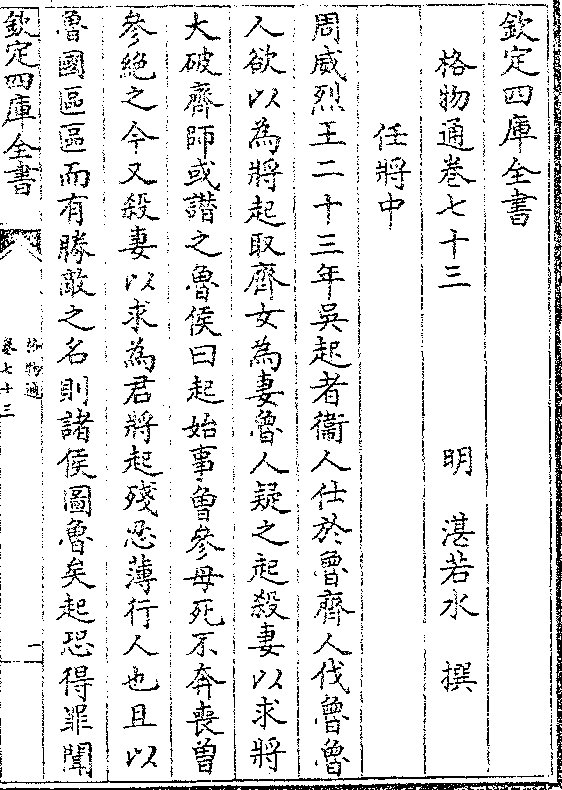 欽定四庫全書
格物通卷七十三
明 湛若水 撰
任將中
周威烈王二十三年吳起者衞人仕於魯齊人伐魯魯
人欲以為將起取齊女為妻魯人疑之起殺妻以求將
大破齊師或譖之魯侯曰起始事魯參母死不奔喪曾
參絶之今又殺妻以求為君將起殘忍薄行人也且以
魯國區區而有勝敵之名則諸侯圖魯矣起恐得罪聞
欽定四庫全書
格物通
卷七十三
一